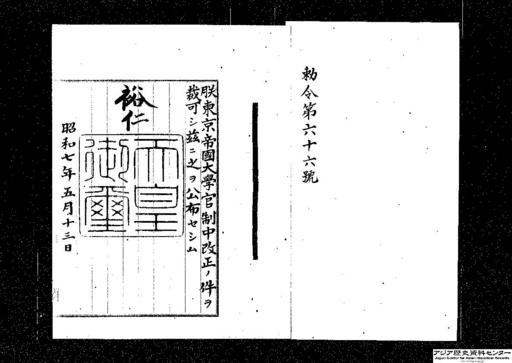 勅令第六十六號
朕東京帝國大學官制中改正ノ件ヲ
裁可シ茲ニ之ヲ公布セシム
裕仁
天皇
御璽
昭和七年五月十三日
アジア歴史資料センター
Japan Center for Asian Historical Records